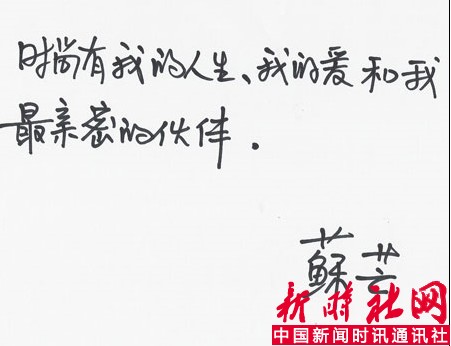 时尚有我的人生、我的爱和我
最亲密的伙伴.
蘇芸
新时社网
中国新闻时讯通讯社